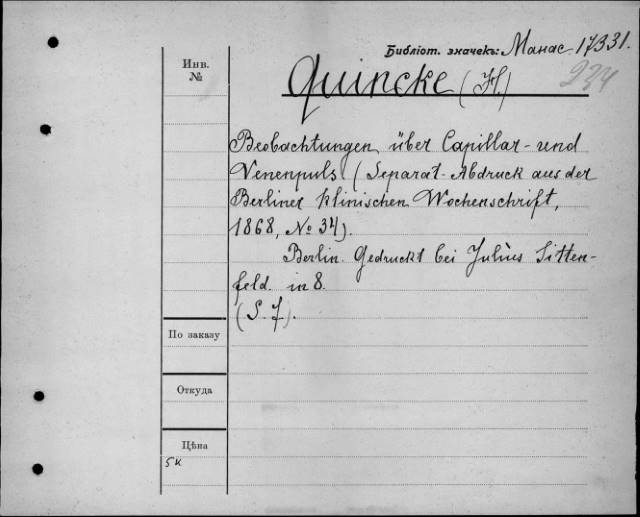 Библіот. значекъ: Манас 17331.
234
Инв.
№
Quincke (H.)
Beobachtungen über Capillar- und
Venenpuls (Separat-Abdruck aus der
Berliner klinischen Wochenschrift,
1868, No 34).
Berlin. Gedruckt bei Julius Sitten-
feld. in 8.
(S. 7).
По заказу
Откуда
Цѣна
5к